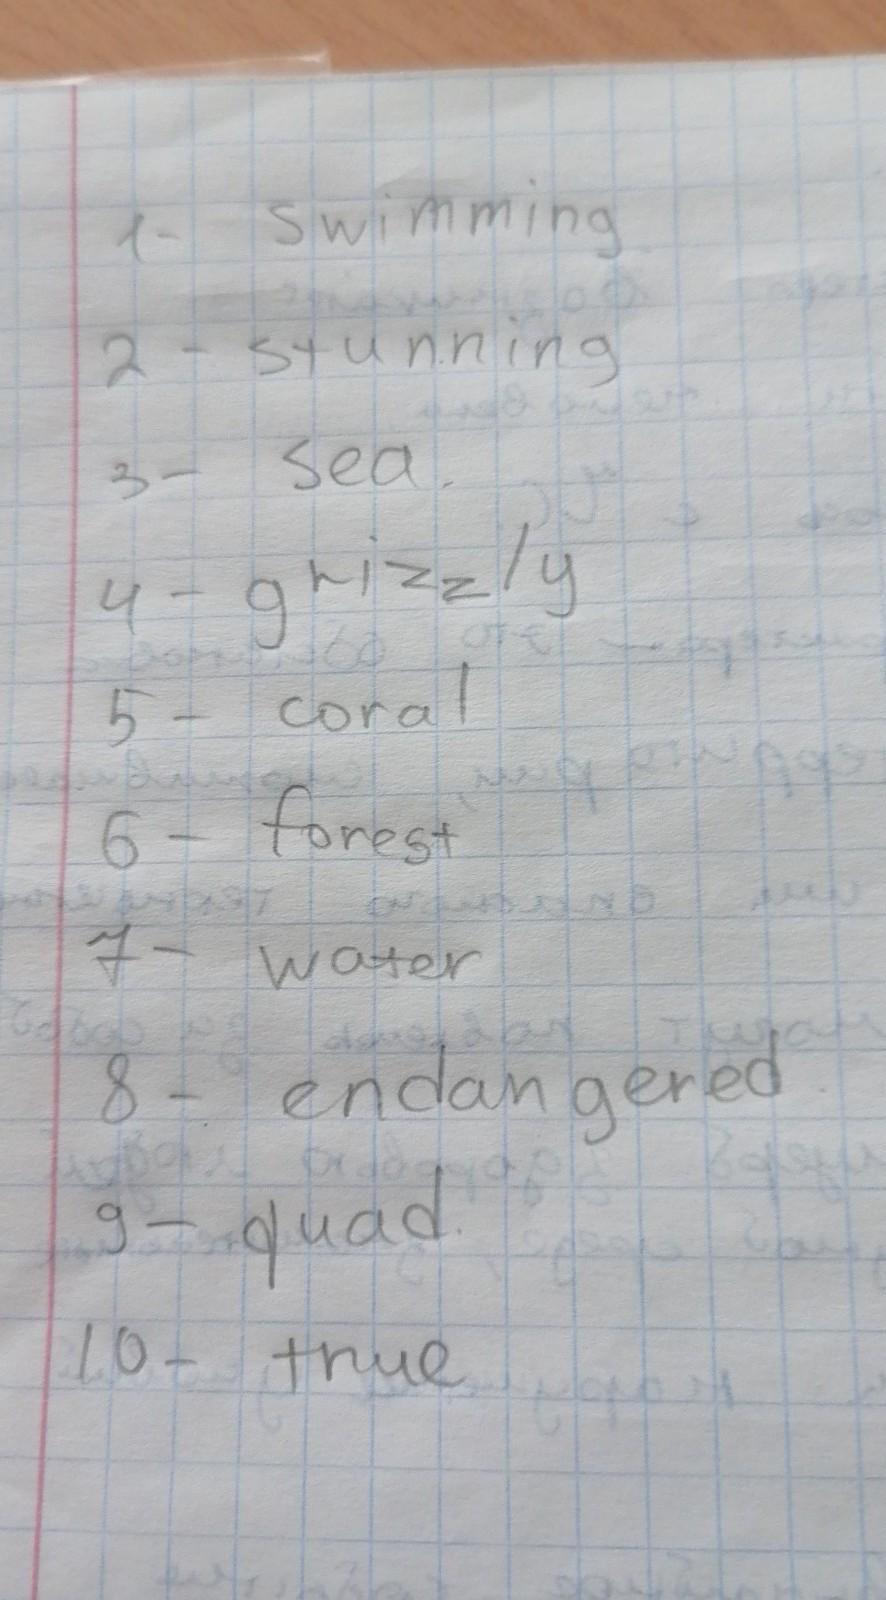 1- swimming
2 - stunning
3 - sea.
4 - grizzly
5 - coral
6 - forest
7 - water
8 - endangered.
9 - quad.
10 - true